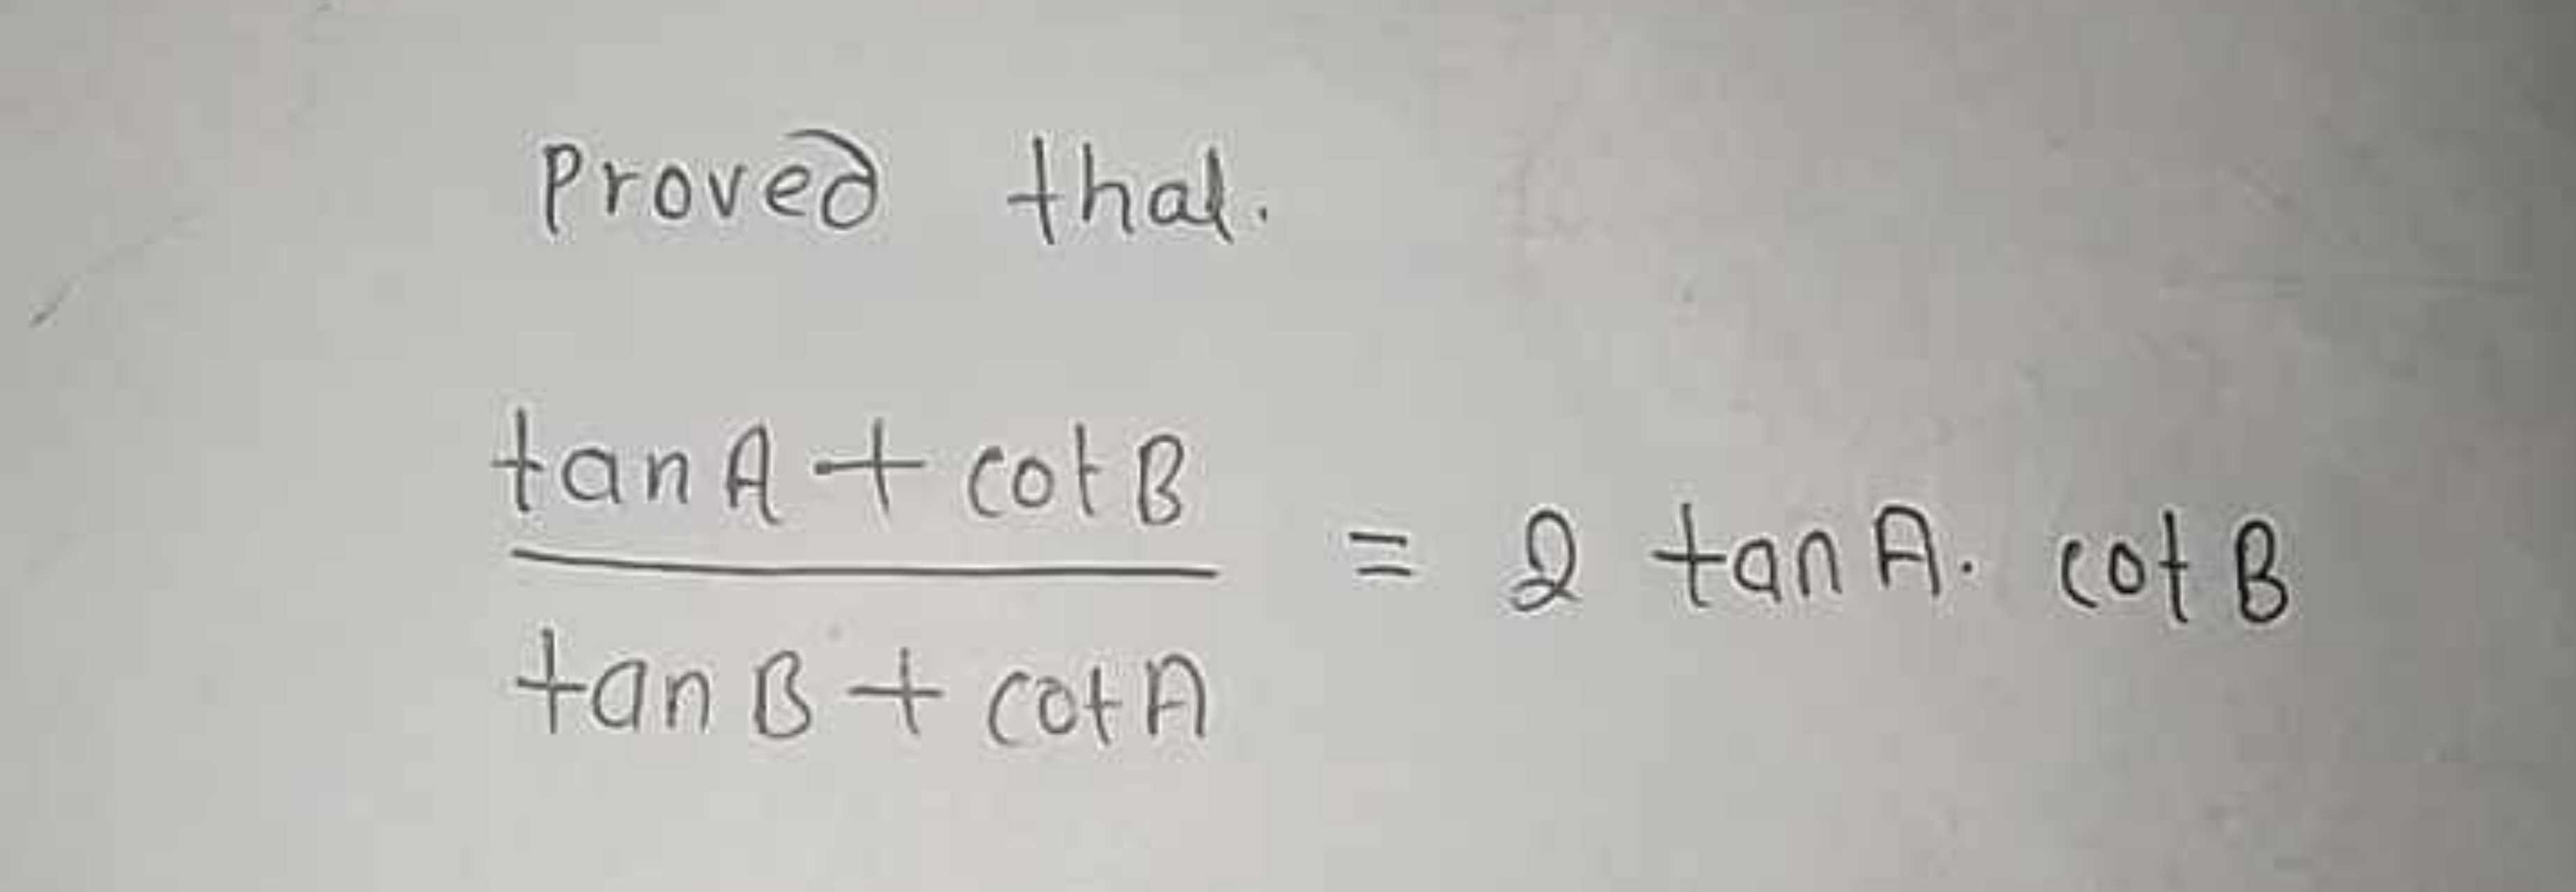 Proved that.
tan A + cot B
= 2 tan A. cot B
tan B + cot A